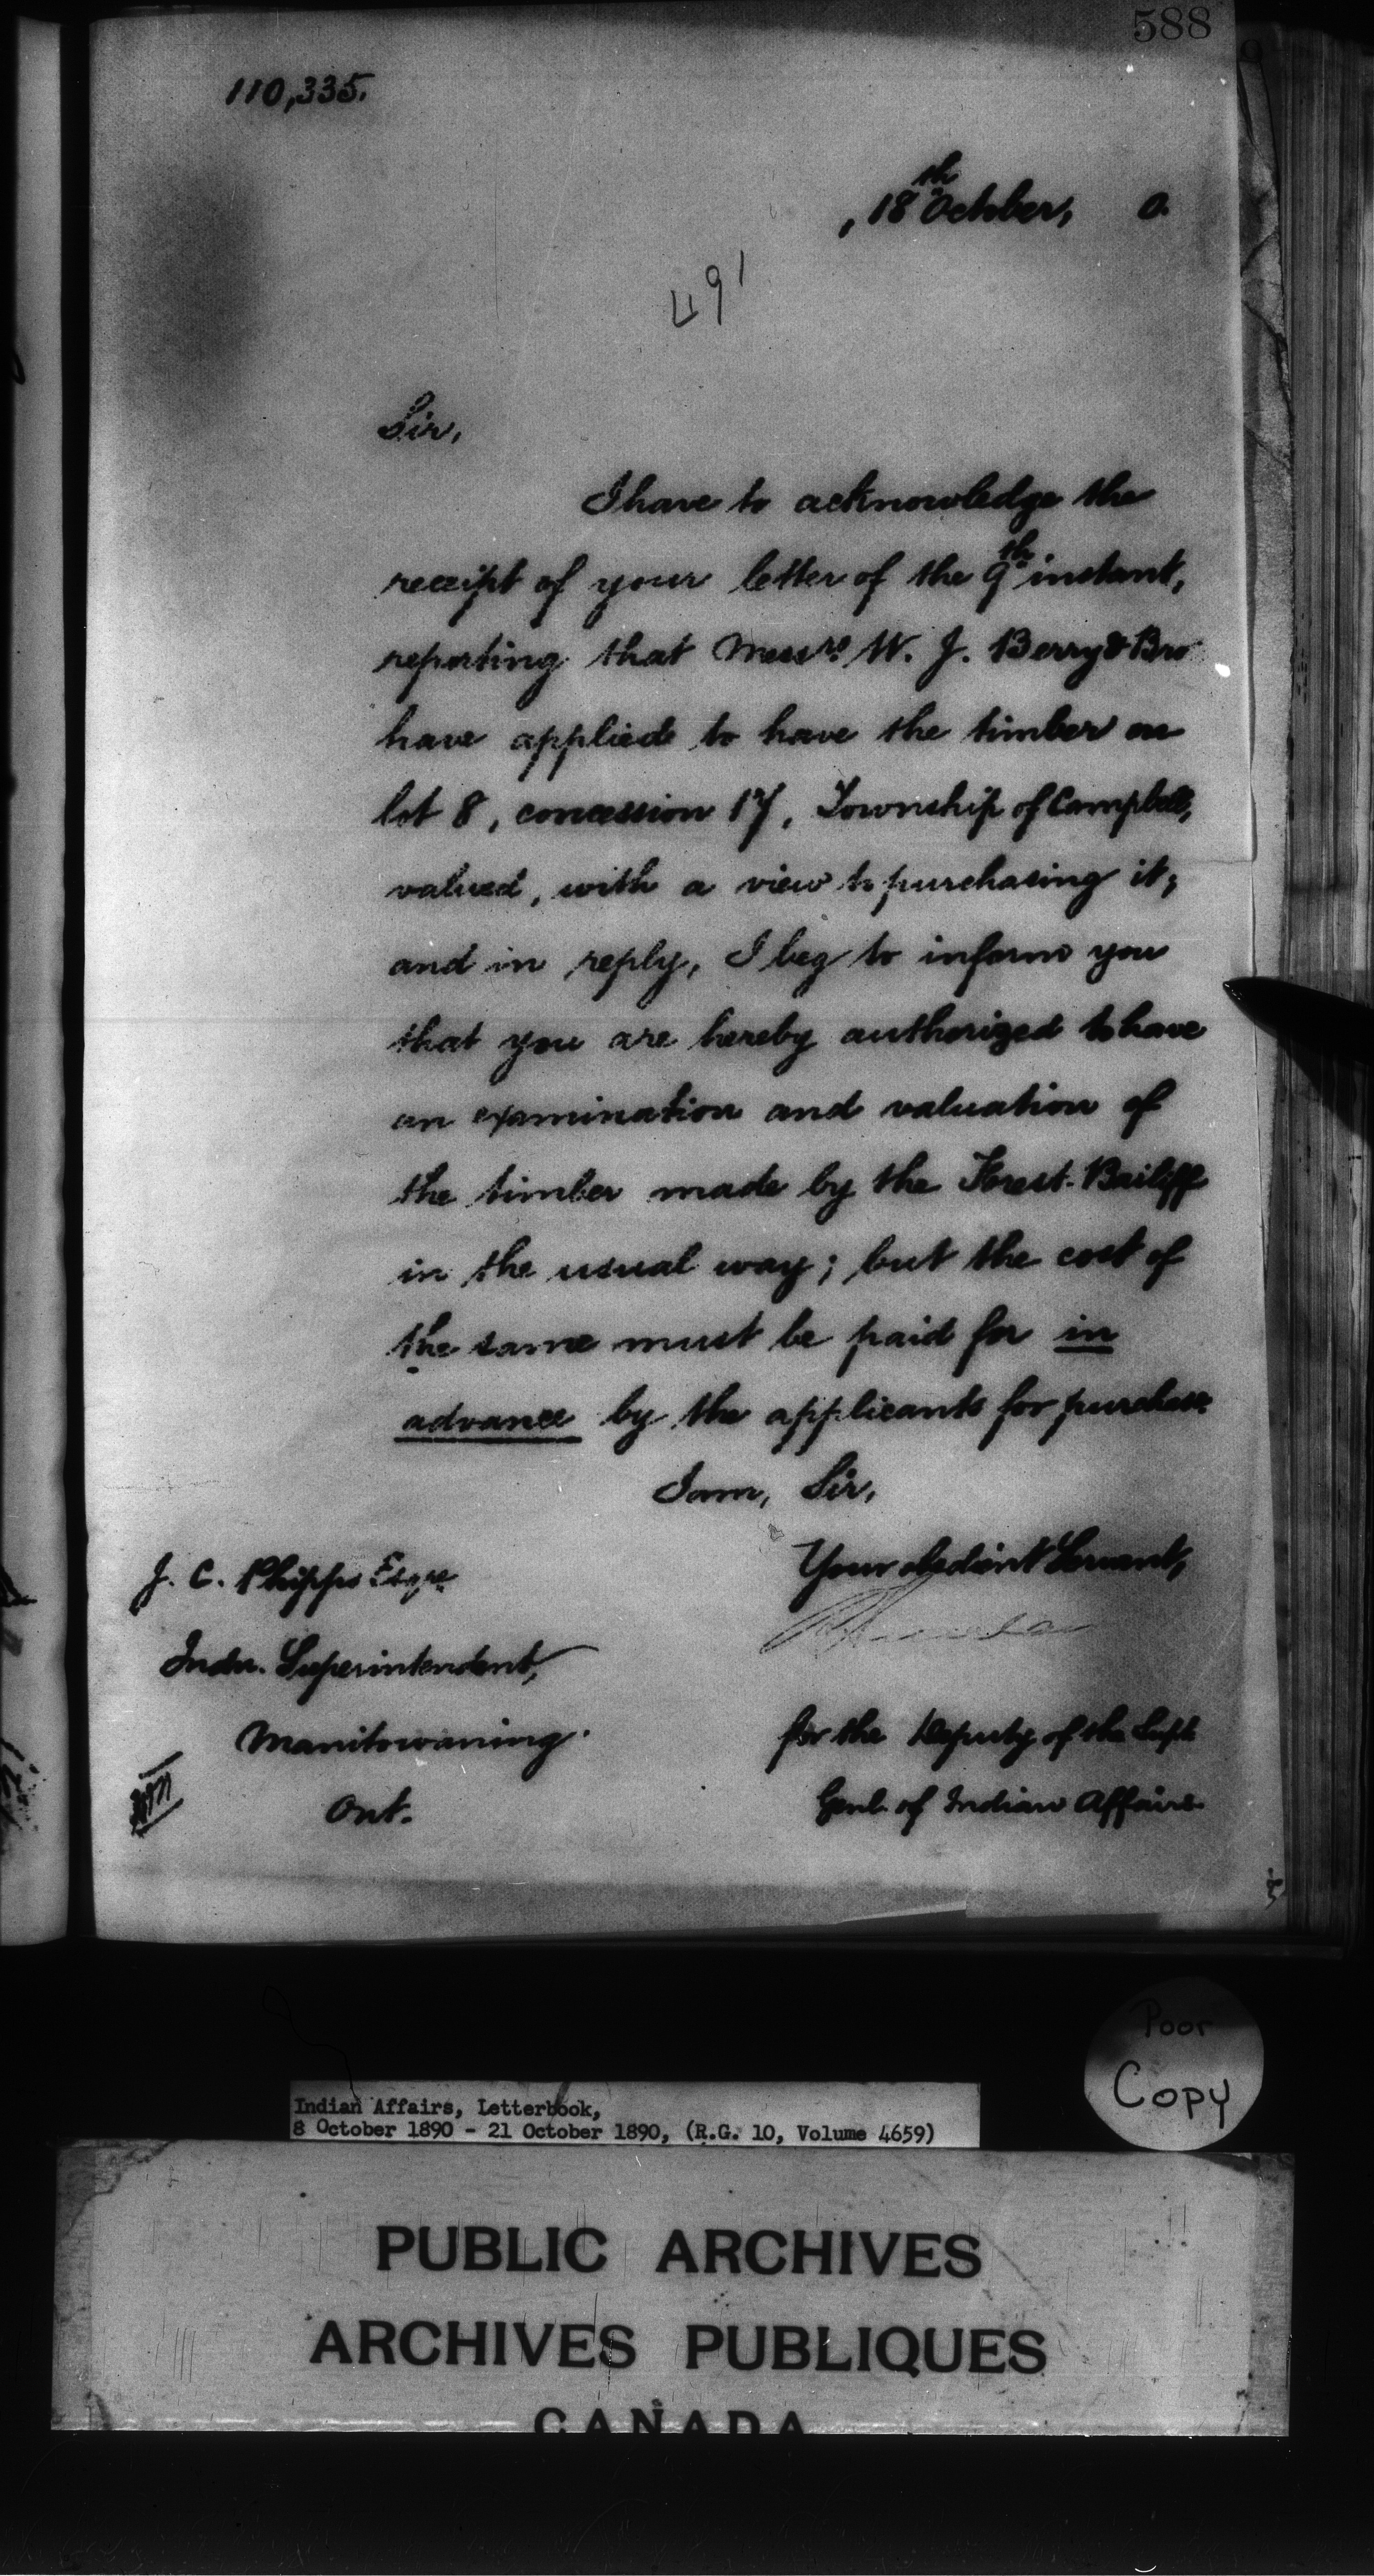 588
110,335.
, 18th October, 0.
491
Sir,
I have to acknowledge the
receipt of your letter of the 9th instant,
reporting that Messrs. W. J. Berry & Bro
have applied to have the timber on
lot 8, concession 17, Township of Campbell,
valued, with a view to purchasing it;
and in reply, I beg to inform you
that you are hereby authorized to have
an examination and valuation of
the timber made by the Forest-Bailiff
in the usual way; but the cost of
the same must be paid for in
advance by the applicants for purchase.
I am, Sir,
Your obedient Servant,
J. C. Phipps Esqre
Indn. Superintendent,
Manitowaning.
Ont.
for the Deputy of the Supt.
Genl. of Indian Affairs.
Poor
Copy
Indian Affairs, Letterbook,
8 October 1890 - 21 October 1890, (R.G. 10, Volume 4659)
PUBLIC ARCHIVES
ARCHIVES PUBLIQUES
CANADA